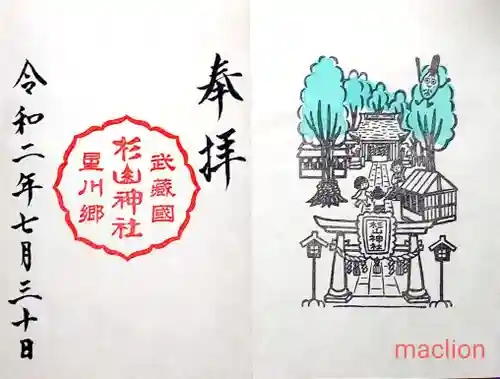 奉拝
武蔵國
杉山神社
星川郷
令和二年七月三十日
杉山神社
maclion